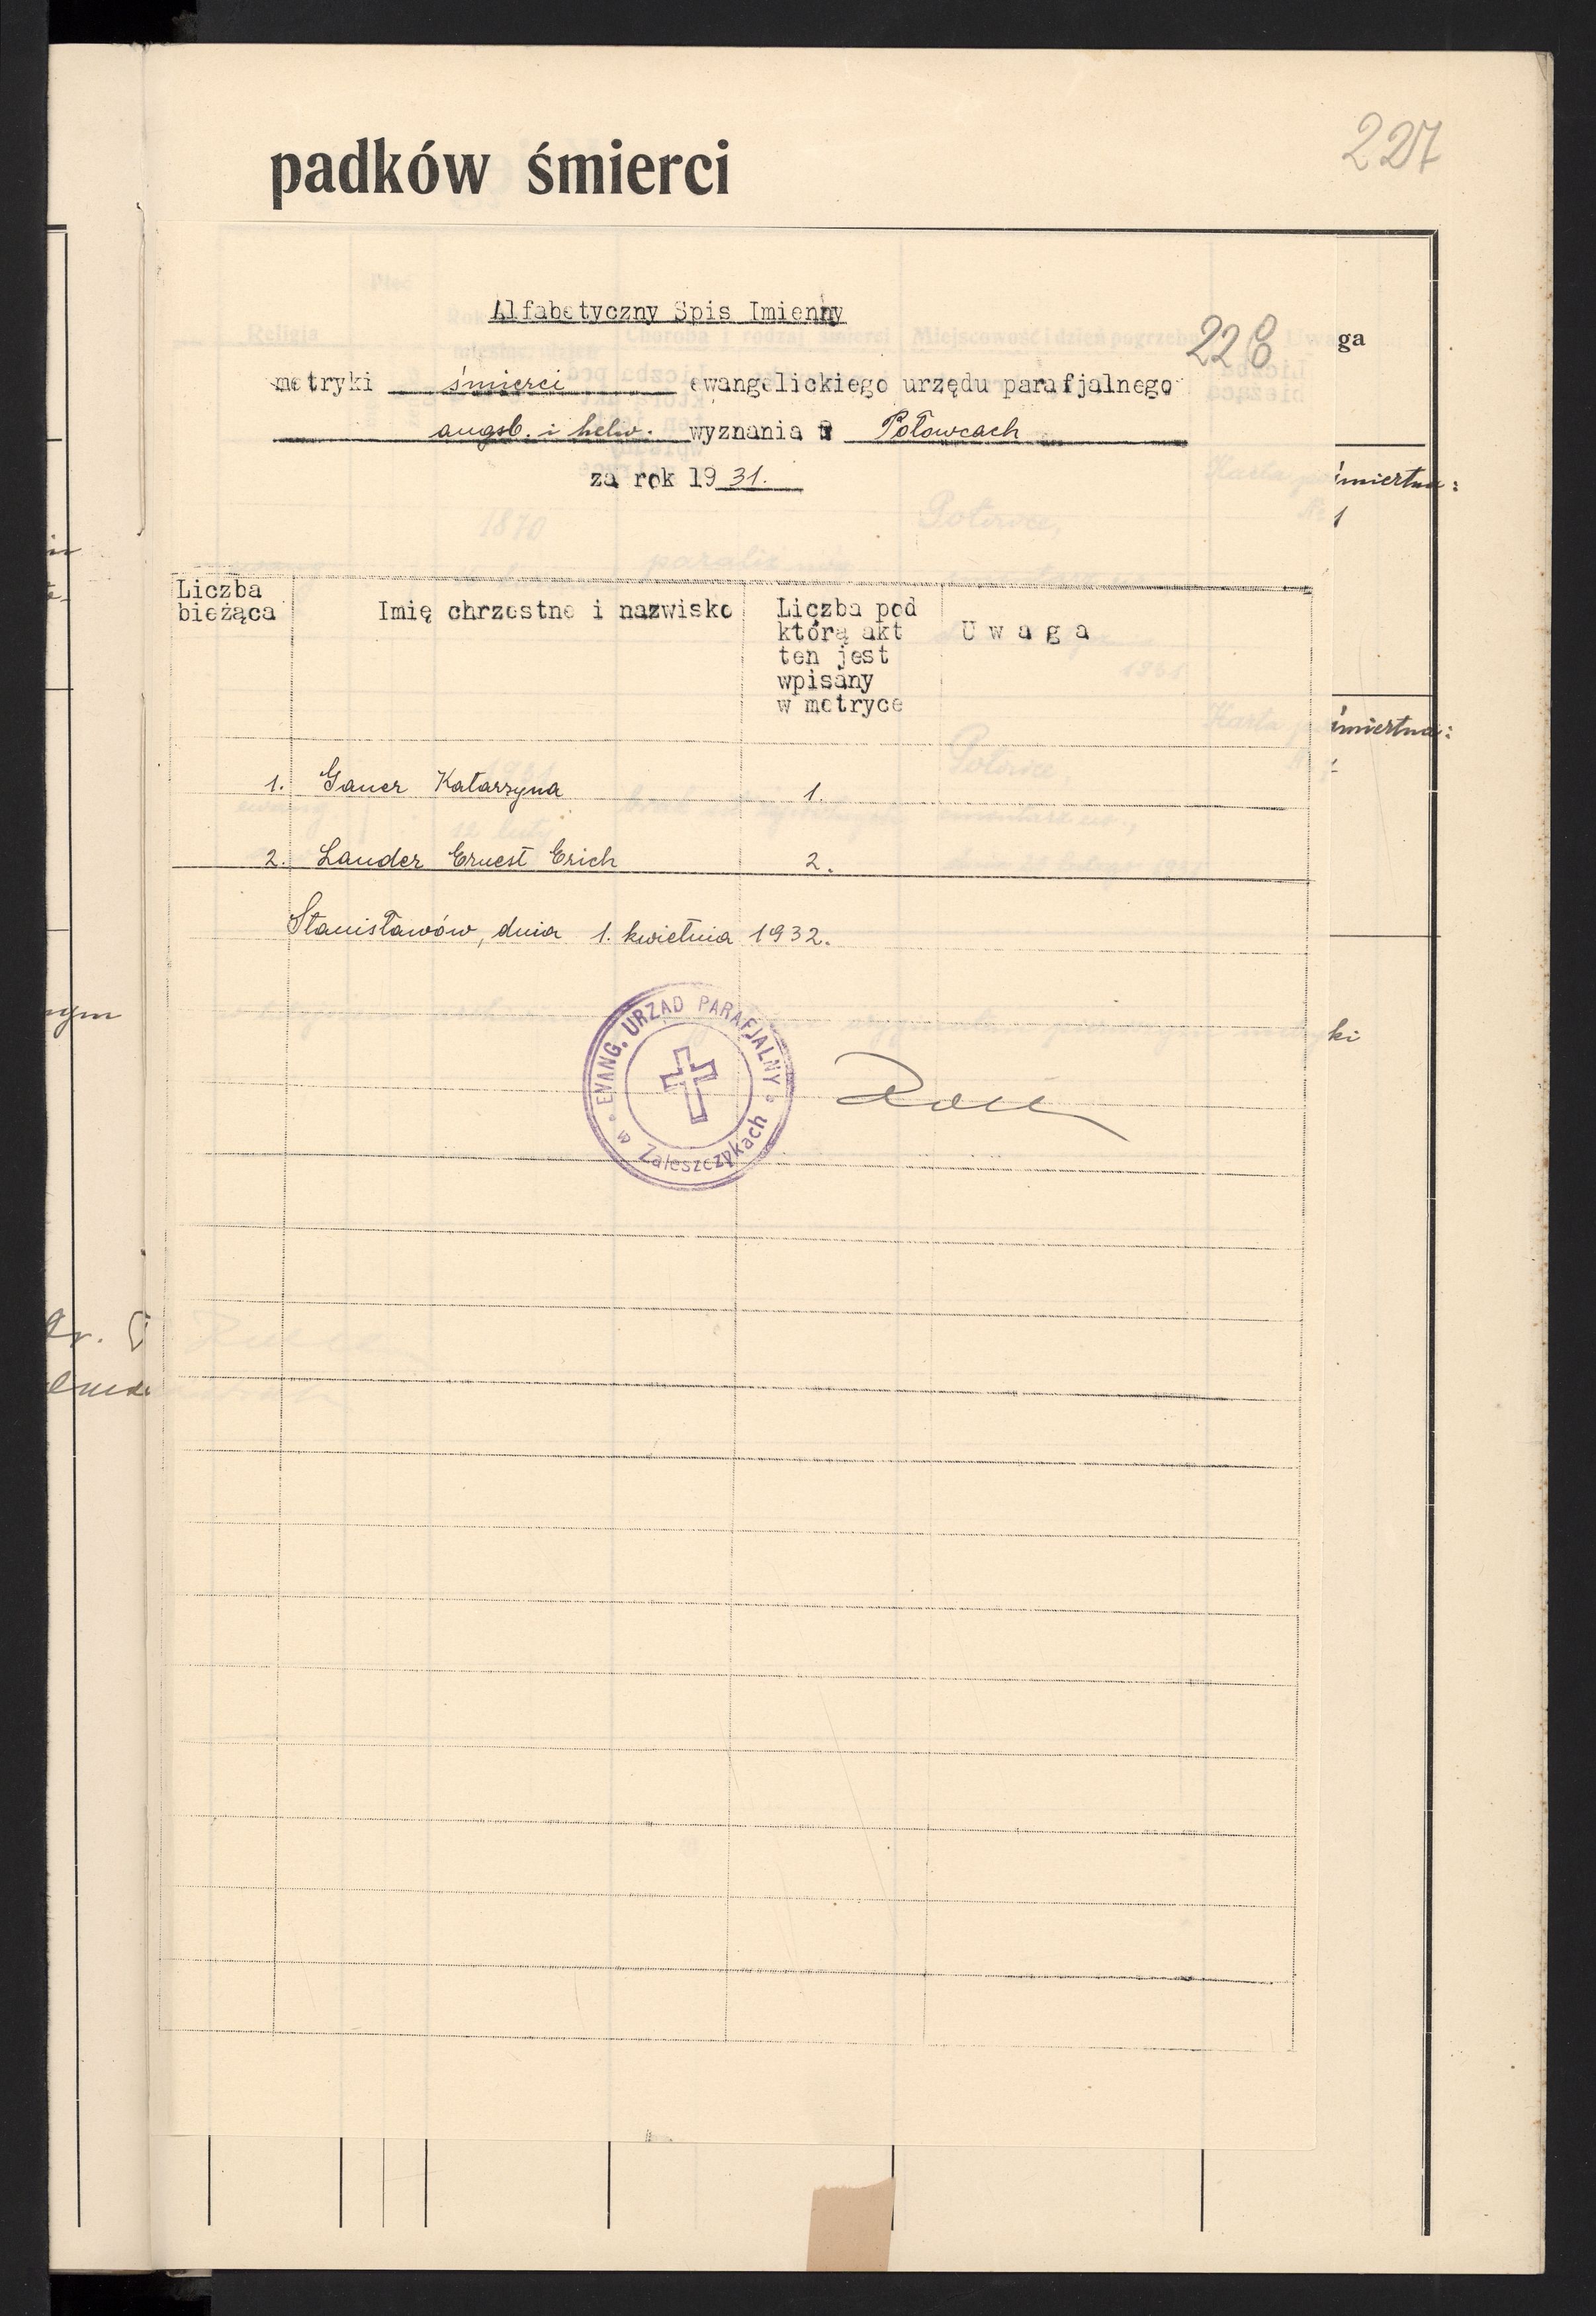 padków śmierci
227
Alfabetyczny Spis Imienny
228
ga
metryki śmierci ewangelickiego urzędu parafjalnego
augsb. i helw. wyznania w Połowcach
za rok 1931.
śmiertna:
1
Liczba bieżąca
Imię chrzestne i nazwisko
Liczba pod którą akt ten jest wpisany w metryce
U w a g a
śmiertna:
1. Gauer Katarzyna 1.
2. Lauder Ernest Erich 2.
Stanisławów, dnia 1. kwietnia 1932.
nym
ki
EWANG. URZĄD PARAFJALNY
w Zaleszczykach